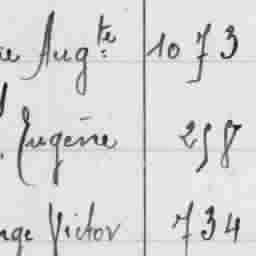 Aug^te 1073
Eugène 258
Victor 734